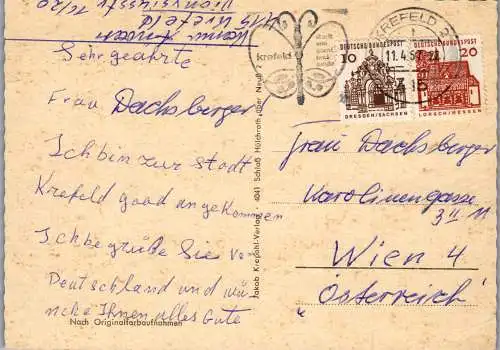 415 Krefeld
Sehr geehrte
Frau Dachsberger
Ich bin zur Stadt
Krefeld good angekommen
Ich begrüße Sie von
Deutschland und wün
sche Ihnen alles Gute
Nach Originalfarbaufnahmen
Jakob Krapohl-Verlag · 4041 Schloß Hülchrath über Neuß 2
krefeld
stadt
wie
samt
und
seide
KREFELD
11.4.67
415
DEUTSCHE BUNDESPOST
10
DRESDEN/SACHSEN
DEUTSCHE BUNDESPOST
20
LORSCH/HESSEN
Frau Dachsberger
Karolinengasse
3 II 11
Wien 4
Österreich